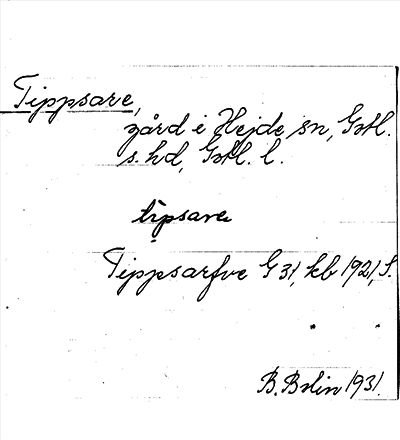 Tippsarve,
gård i Hejde sn, Gotl.
s. hd, Gotl. l.
tipsarve
Tippsarfve G 31, kb 1921, S.
B. Bolin 1931.